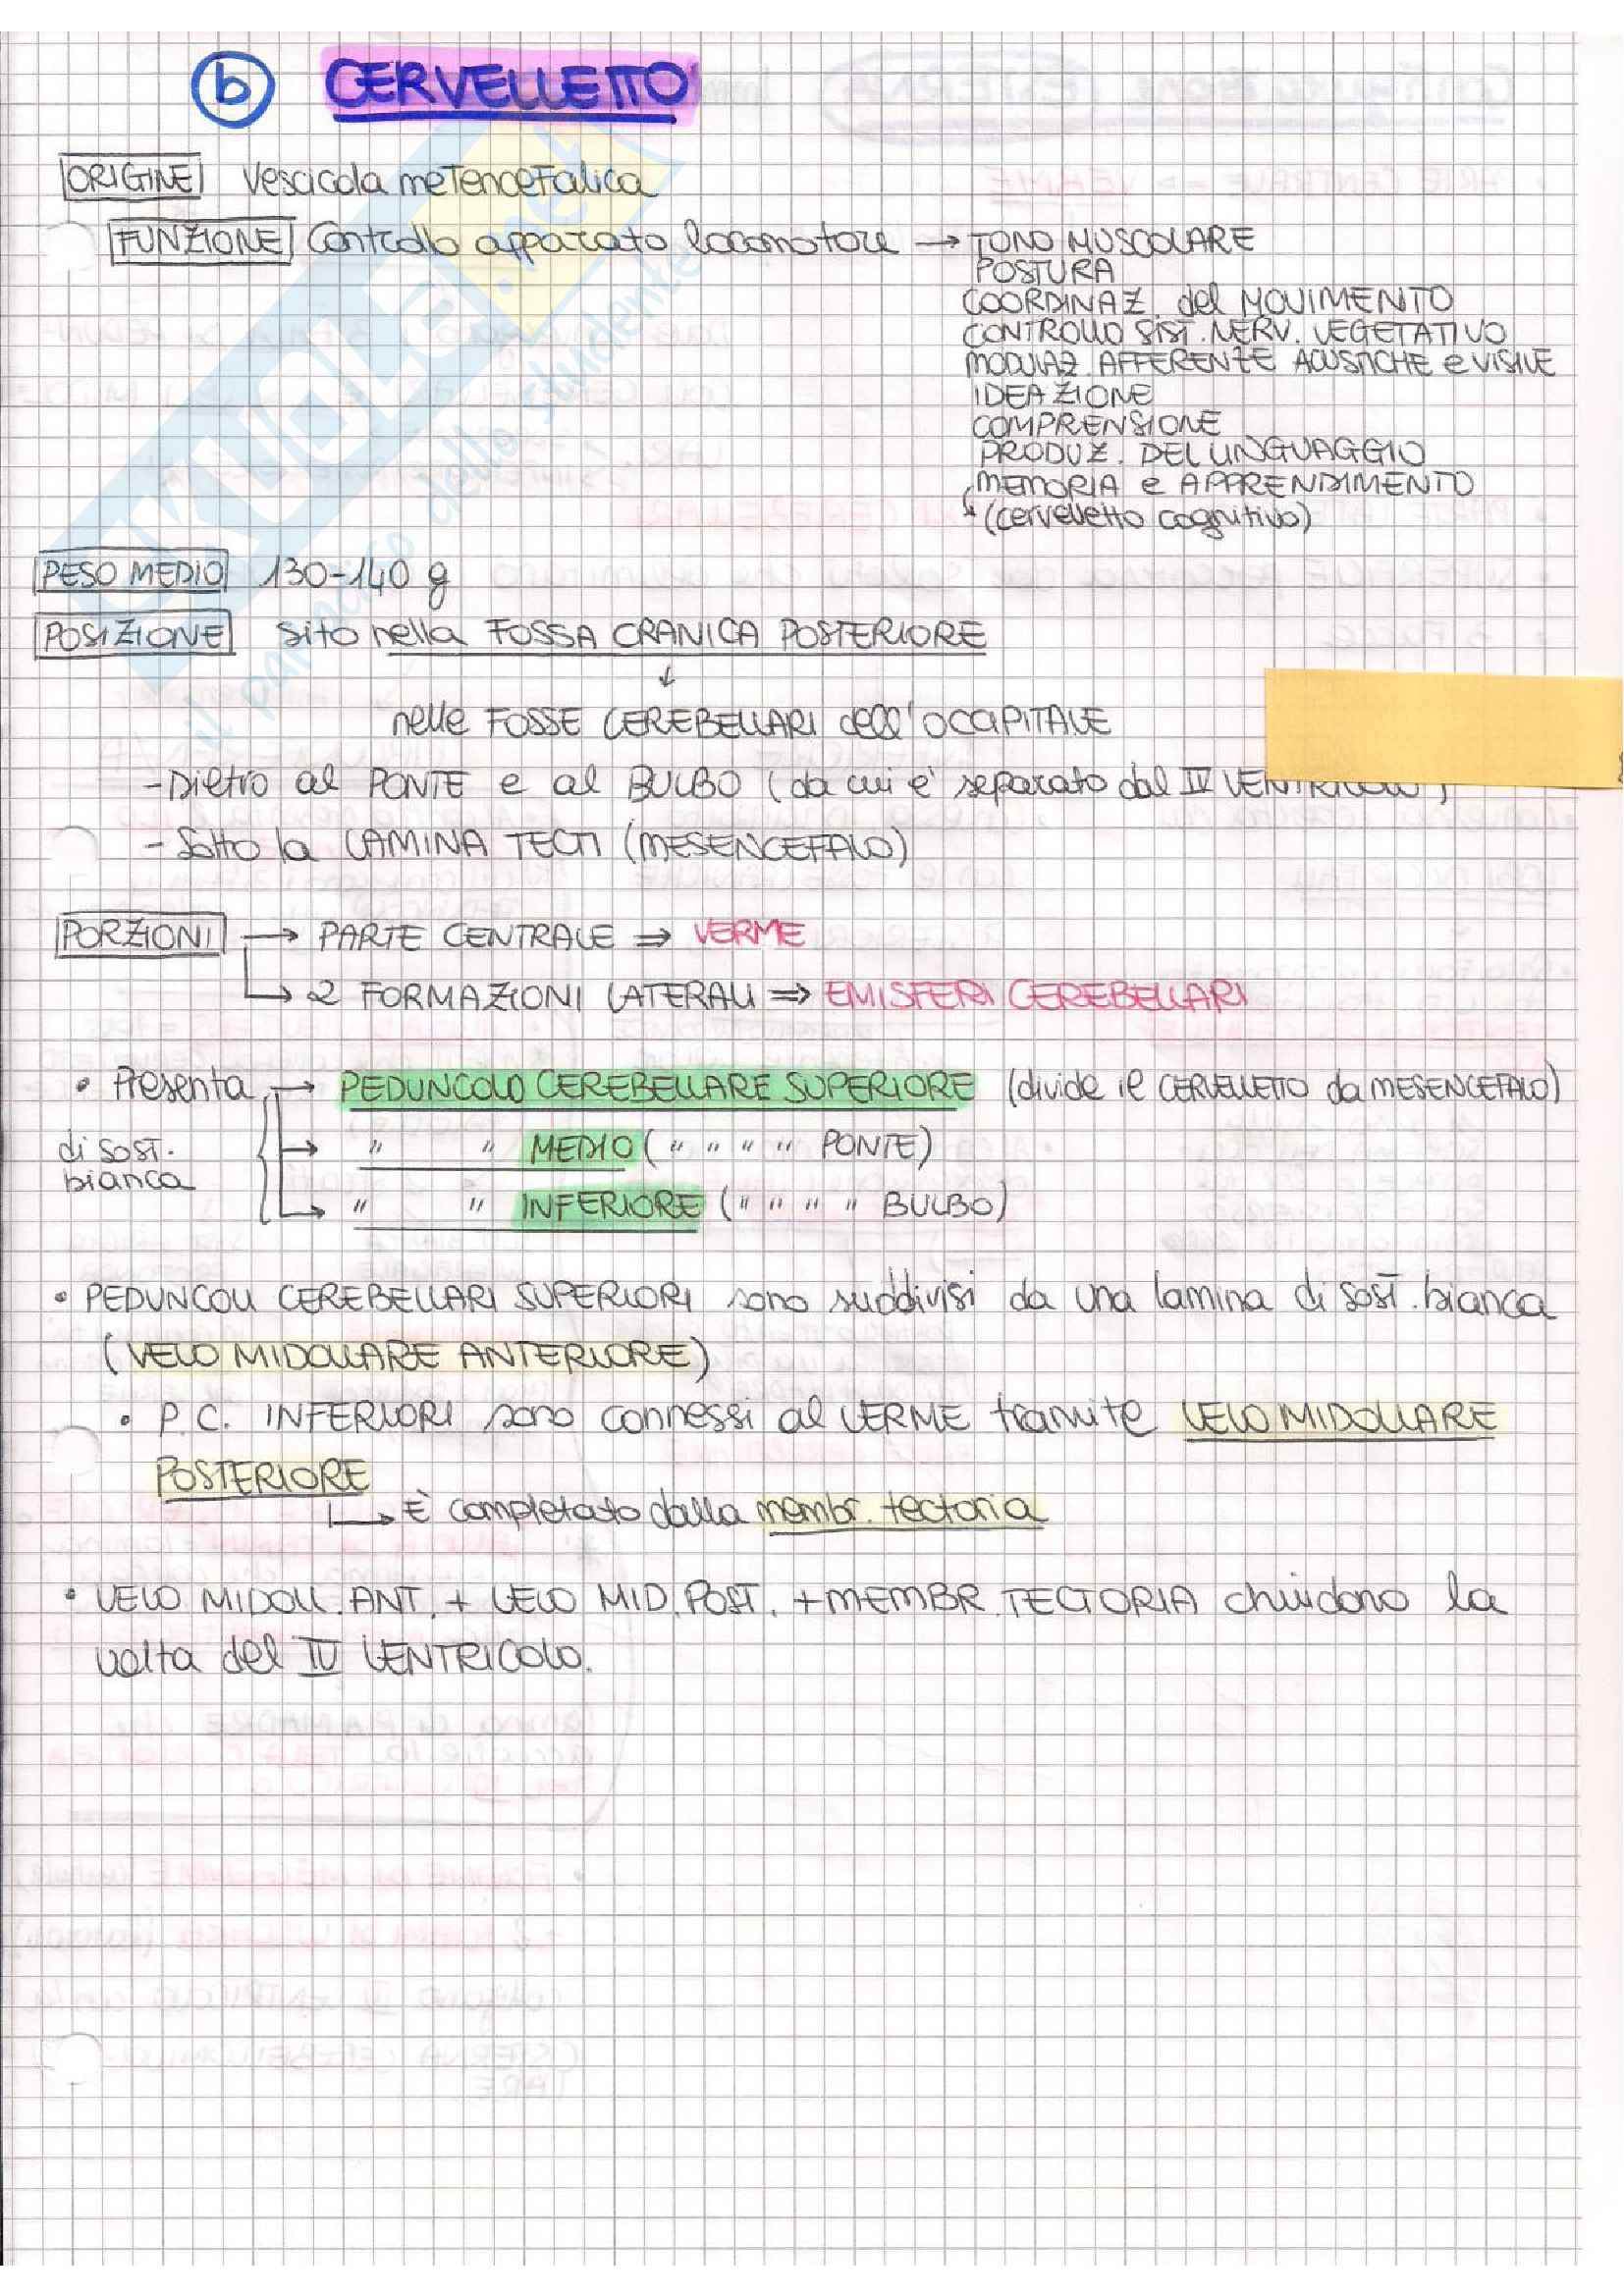 b CERVELLETTO
ORIGINE Vescicola metencefalica
FUNZIONE Controllo apparato locomotore → TONO MUSCOLARE
POSTURA
COORDINAZ. del MOVIMENTO
CONTROLLO SIST. NERV. VEGETATIVO
MODULAZ. AFFERENTE ACUSTICHE e VISIVE
IDEAZIONE
COMPRENSIONE
PRODUZ. DEL LINGUAGGIO
MEMORIA e APPRENDIMENTO
↳ (cervelletto cognitivo)
PESO MEDIO 130-140 g
POSIZIONE sito nella FOSSA CRANICA POSTERIORE
↓
nelle FOSSE CEREBELLARI dell'OCCIPITALE
- Dietro al PONTE e al BULBO (da cui è separato dal IV VENTRICOLO)
- Sotto la LAMINA TECTI (MESENCEFALO)
PORZIONI → PARTE CENTRALE ⇒ VERME
↳ 2 FORMAZIONI LATERALI ⇒ EMISFERI CEREBELLARI
• Presenta → PEDUNCOLO CEREBELLARE SUPERIORE (divide il CERVELLETTO da MESENCEFALO)
di sost. → " " MEDIO (" " " " PONTE)
bianca
→ " " INFERIORE (" " " " BULBO)
• PEDUNCOLI CEREBELLARI SUPERIORI sono suddivisi da una lamina di sost. bianca
(VELO MIDOLLARE ANTERIORE)
• P.C. INFERIORI sono connessi al VERME tramite VELO MIDOLLARE
POSTERIORE
↳ È completato dalla membr. tectoria
• VELO MIDOLL. ANT. + VELO MID. POST. + MEMBR. TECTORIA chiudono la
volta del IV VENTRICOLO.
SKUOLA.net
il paradiso dello studente